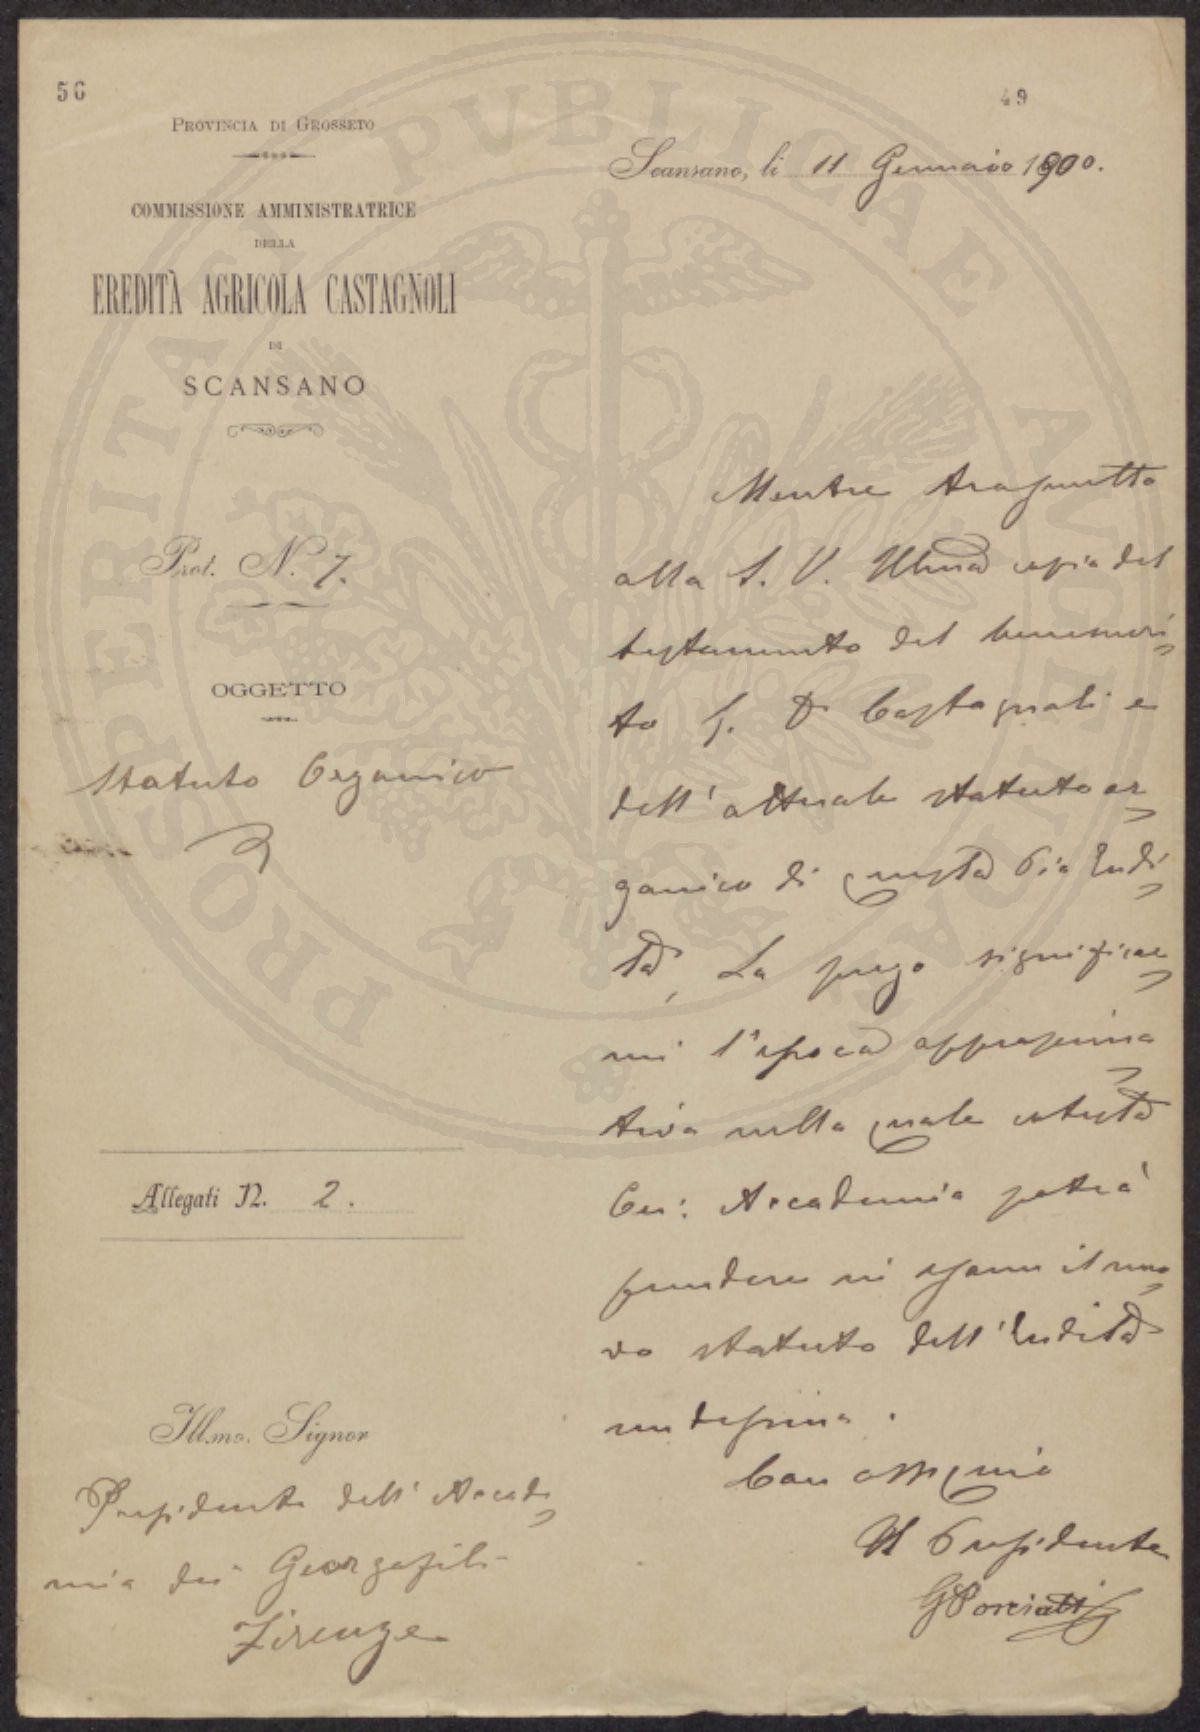 56
49
PROVINCIA DI GROSSETO
COMMISSIONE AMMINISTRATRICE
DELLA
EREDITÀ AGRICOLA CASTAGNOLI
DI
SCANSANO
Scansano, li 11 Gennaio 1900.
Prot. N. 7.
OGGETTO
Statuto Organico
Allegati N. 2.
Illmo. Signor
Presidente dell'Accade
mia dei Georgofili
Firenze
Mentre trasmetto
alla S. V. Illma copia del
testamento del benemeri
to G. D Castagnoli e
dell'attuale statuto or
ganico di questa Pia Eredi
tà, La prego significar
mi l'epoca approssima
tiva nella quale cotesta
Accademia potrà
prendere in esame il nuo
vo statuto dell'Eredità
medesima.
Con ossequio
Il Presidente
G Porciatti
PROSPERITATI PVBLICAE AVGENDAE